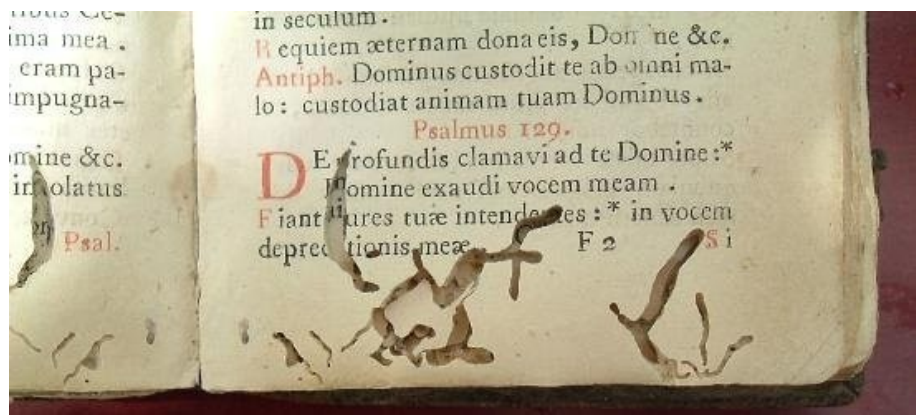 ima mea .
eram pa-
impugna-
omine &c.
Psal.
in seculum .
Requiem æternam dona eis, &c.
Antiph. Dominus custodit te ab omni ma-
lo : custodiat animam tuam Dominus .
Psalmus 129.
DE profundis clamavi ad te Domine :*
Domine exaudi vocem meam .
Fiant tuæ :* in vocem
meæ F 2 Si